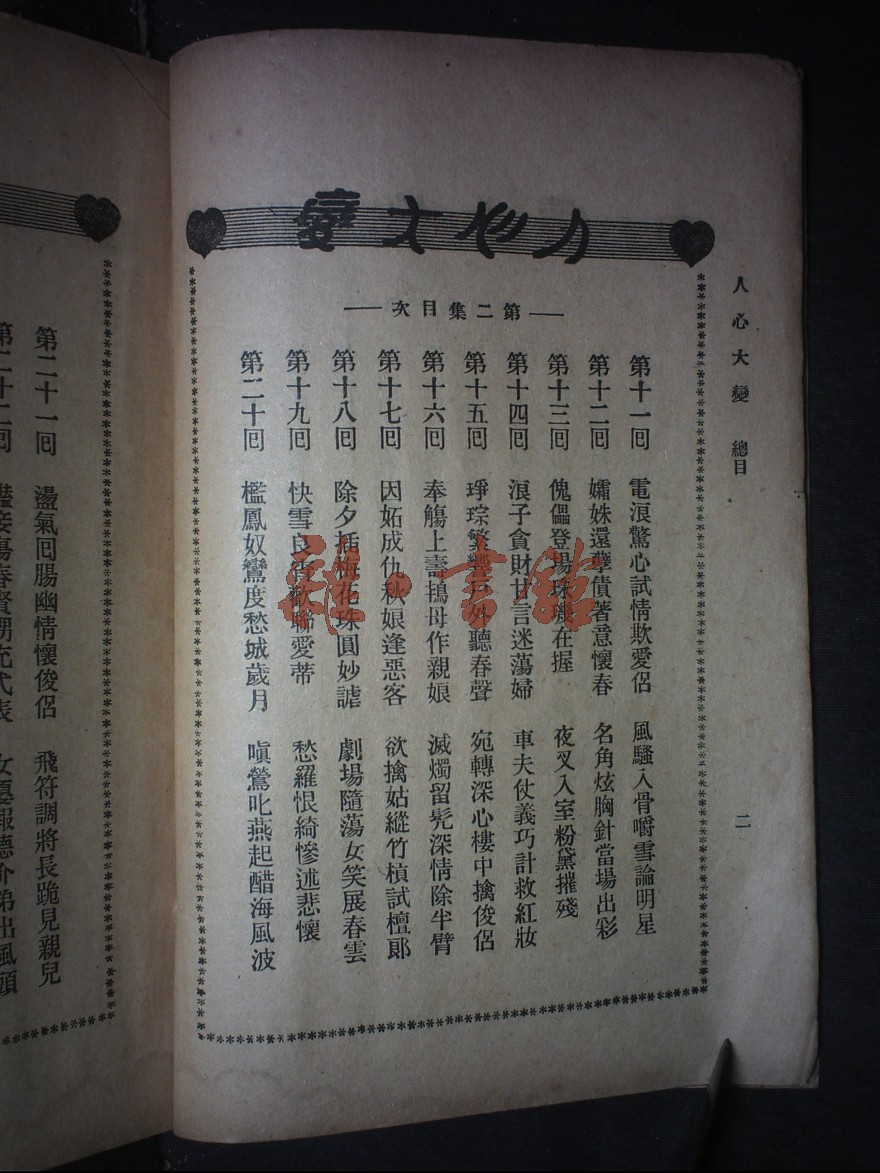 人心大變 總目
二
人心大變
第二集目次
第十一回 電浪驚心試情欺愛侶 風騷入骨嚼雪論明星
第十二回 孀姝還孽債著意懷春 名角炫胸針當場出彩
第十三回 傀儡登場珠璣在握 夜叉入室粉黛摧殘
第十四回 浪子貪財甘言迷蕩婦 車夫仗義巧計救紅妝
第十五回 琤琮繁響戶外聽春聲 宛轉深心樓中擒俊侶
第十六回 奉觴上壽鴇母作親娘 滅燭留髡深情除半臂
第十七回 因妬成仇秋娘逢惡客 欲擒姑縱竹槓試檀郎
第十八回 除夕插梅花珠圓妙謔 劇場隨蕩女笑展春雲
第十九回 快雪良宵歡聯愛蒂 愁羅恨綺慘述悲懷
第二十回 檻鳳奴鸞度愁城歲月 嗔鶯叱燕起醋海風波
第二十一回 盪氣回腸幽情懷俊侶 飛符調將長跪見親兒
第二十二回 傷春賢甥充代表 女優報德介弟出風頭
雜·書館